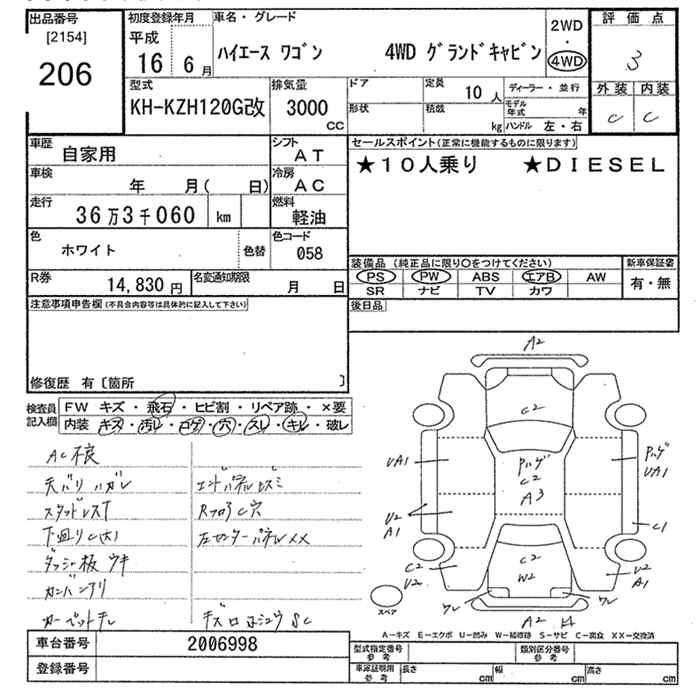 出品番号
[2154]
206
初度登録年月
平成
16 6月
車名・グレード
ハイエース ワゴン 4WD グランドキャビン
2WD
・
4WD
評価点
3
外装 内装
C C
型式
KH-KZH120G改
排気量
3000
CC
ドア
形状
定員
10 人
積載
kg
ディーラー・並行
モデル年式 年
ハンドル 左・右
車歴
自家用
シフト
AT
車検
年 月( 日)
冷房
AC
走行
36万3千060 km
燃料
軽油
色
ホワイト
色替
色コード
058
R券
14,830 円
名変通知期限
月 日
セールスポイント(正常に機能するものに限ります)
★10人乗り ★DIESEL
装備品 (純正品に限り○をつけてください)
PS PW ABS エアB AW
SR ナビ TV カワ
新車保証書
有・無
後日品
注意事項申告欄 (不具合内容等は具体的に記入して下さい)
修復歴 有〔箇所 〕
検査員
記入欄
FW キズ・飛石・ヒビ割・リペア跡・×要
内装・キズ・汚レ・コゲ・穴・スレ・キレ・破レ
AC不良
天バリハガレ
エンドパネルネズミ
スタッドレスT
RフロアC穴
下廻りC(大)
左センターパネルXX
ダッシュ板ウキ
カンバンアリ
カーペットキレ
SC
A2
C2
Pハゲ
C2
A3
C2
W2
UA1
U2
A1
C2
U2
Pハゲ
UA1
C1
U2
A1
ワレ
ワレ
A2
スペア
A－キズ E－エクボ U－凹み W－補修跡 S－サビ C－腐食 XX－交換済
車台番号
2006998
登録番号
型式指定番号
参考
類別区分番号
参考
車庫証明用
参考
長さ cm 幅 cm 高さ cm